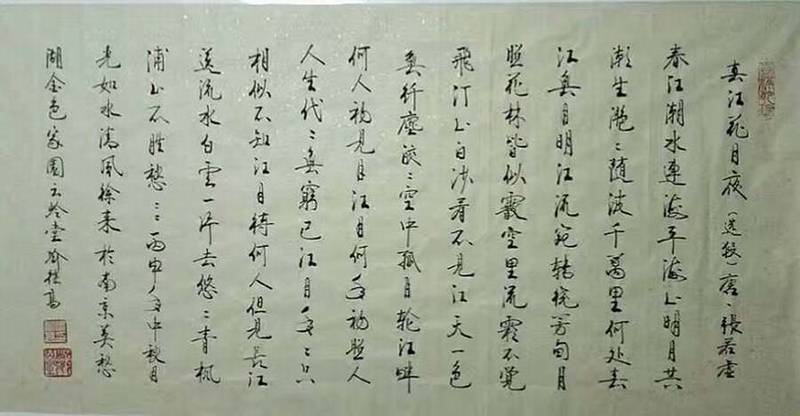 春江花月夜（选段）唐、張若虚
春江潮水連海平海上明月共
潮生滟〻随波千萬里何处春
江無月明江流宛转绕芳甸月
照花林皆似霰空里流霜不觉
飛汀上白沙看不見江天一色
無纤塵皎〻空中孤月轮江畔
何人初見月江月何年初照人
人生代〻無窮已江月年〻只
相似不知江月待何人但見長江
送流水白雲一片去悠〻青枫
浦上不胜愁〻丙申年中秋月
光如水清風徐来於南京莫愁
湖金色家園云堂